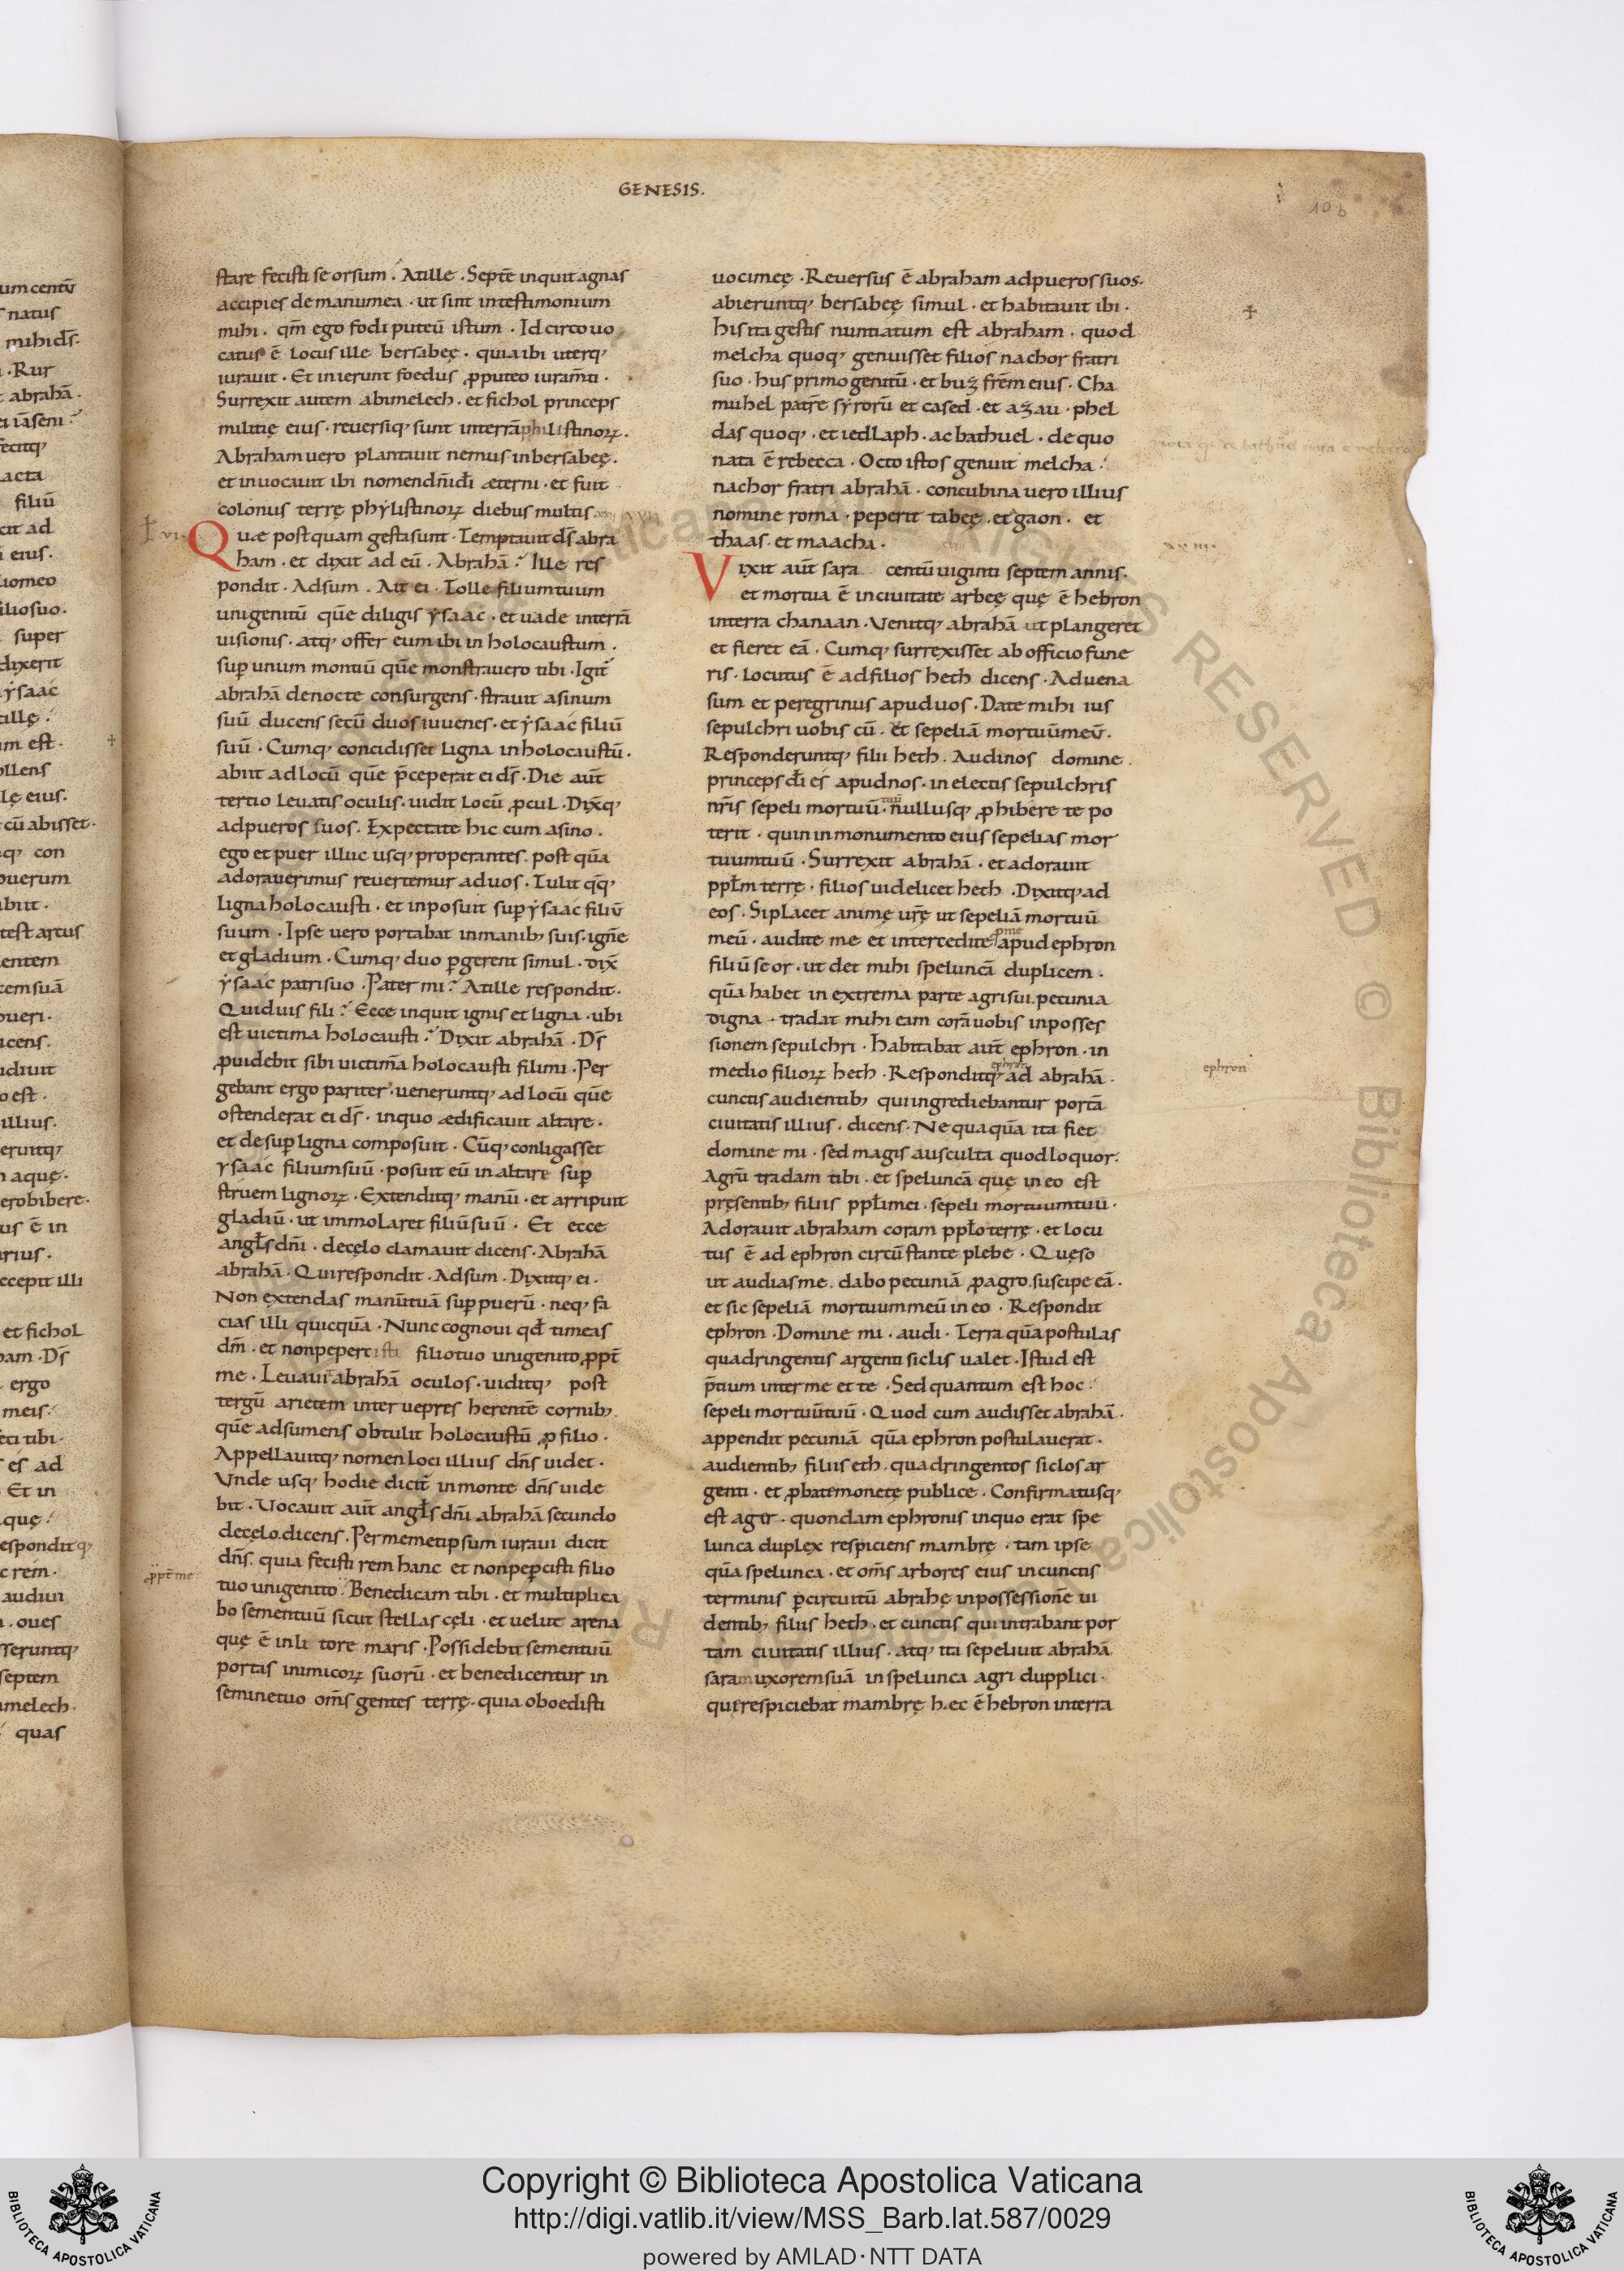 GENESIS.
10 b
stare fecisti seorsum. At ille. Septē inquit agnas
accipies de manu mea. ut sint in testimonium
mihi. qm̄ ego fodi puteū istum. Idcirco uo
catus ē locus ille bersabeę. quia ibi uterq;
iurauit. Et inierunt foedus ꝓ puteo iuram̄ti.
Surrexit autem abimelech. et fichol princeps
militię eius. reuersiq; sunt in terrā philistinoꝝ.
Abraham uero plantauit nemus in bersabeę.
et inuocauit ibi nomen dn̄i dī æterni. et fuit
colonus terrę phẏlistinoꝝ diebus multis.
Quæ postquam gesta sunt. Temptauit ds̄ abra
ham. et dixit ad eū. Abrahā? Ille res
pondit. Adsum. Ait ei. Tolle filium tuum
unigenitū quē diligis ẏsaac. et uade in terrā
uisionis. atq; offer eum ibi in holocaustum.
suꝑ unum montiū quē monstrauero tibi. Igit̄
abrahā de nocte consurgens. strauit asinum
suū ducens secū duos iuuenes. et ẏsaac filiū
suū. Cumq; concidisset ligna in holocaustū.
abiit ad locū quē p̄ceperat ei ds̄. Die aūt
tertio leuatis oculis. uidit locū ꝓcul. Dix̄q;
ad pueros suos. Expectate hic cum asino.
ego et puer illuc usq; properantes. post quā
adorauerimus reuertemur ad uos. Tulit q̄q;
ligna holocausti. et inposuit suꝑ ẏsaac filiū
suum. Ipse uero portabat in manib; suis. ignē
et gladium. Cumq; duo ꝑgerent simul. dix̄
ẏsaac patri suo. Pater mi? At ille respondit.
Quid uis fili? Ecce inquit ignis et ligna. ubi
est uictima holocausti? Dixit abrahā. Ds̄
ꝓuidebit sibi uictimā holocausti fili mi. Per
gebant ergo pariter. ueneruntq; ad locū quē
ostenderat ei ds̄. in quo ædificauit altare.
et desuꝑ ligna composuit. Cūq; conligasset
ysaac filium suū. posuit eū in altare suꝑ
struem lignoꝝ. Extenditq; manū. et arripuit
gladiū. ut immolaret filiū suū. Et ecce
angl̄s dn̄i. de cęlo clamauit dicens. Abrahā
abrahā. Qui respondit. Adsum. Dixitq; ei.
Non extendas manū tuā suꝑ puerū. neq; fa
cias illi quicquā. Nunc cognoui qd̄ timeas
dm̄. et non pepercisti filio tuo unigenito ꝓpt̄
me. Leuauit abrahā oculos. uiditq; post
tergū arietem inter uepres herentē cornib;
quē adsumens obtulit holocaustū ꝓ filio.
Appellauitq; nomen loci illius dn̄s uidet.
Unde usq; hodie dicit̄ in monte dn̄s uide
bit. Uocauit aūt angl̄s dn̄i abrahā secundo
de cęlo. dicens. Per memetipsum iuraui dicit
dn̄s. quia fecisti rem hanc et non peꝑcisti filio
tuo unigenito. Benedicam tibi. et multiplica
bo semen tuū sicut stellas cęli. et uelut arena
quę ē in litore maris. Possidebit semen tuū
portas inimicoꝝ suorū. et benedicentur in
semine tuo om̄s gentes terrę. quia oboedisti
ꝓpt̄ me
uoci meę. Reuersus ē abraham ad pueros suos.
abieruntq; bersabeę simul. et habitauit ibi.
His ita gestis nuntiatum est abraham. quod
melcha quoq; genuisset filios nachor fratri
suo. hus primogenitū. et buz frēm eius. Cha
muhel patrē sẏrorū et cased. et azau. phel
das quoq;. et iedlaph. ac bathuel. de quo
nata ē rebecca. Octo istos genuit melcha.
nachor fratri abrahā. concubina uero illius
nomine roma. peperit tabeę. et gaon. et
thaas. et maacha.
Vixit aūt sara centū uiginti septem annis.
et mortua ē in ciuitate arbeę quę ē hebron
in terra chanaan. Uenitq; abrahā ut plangeret
et fleret eā. Cumq; surrexisset ab officio fune
ris. locutus ē ad filios heth dicens. Aduena
sum et peregrinus apud uos. Date mihi ius
sepulchri uobis cū. et sepeliā mortuū meū.
Responderuntq; filii heth. Audi nos domine
princeps dī es apud nos. in electis sepulchris
nr̄is sepeli mortuū tuū. nullusq; ꝓhibere te po
terit. quin in monumento eius sepelias mor
tuum tuū. Surrexit abrahā. et adorauit
ppl̄m terrę. filios uidelicet heth. Dixitq; ad
eos. Si placet animę ur̄ę ut sepeliā mortuū
meū. audite me et intercedite ꝓ me apud ephron
filiū seor. ut det mihi speluncā duplicem.
quā habet in extrema parte agri sui. pecunia
digna. tradat mihi eam corā uobis in posses
sionem sepulchri. Habitabat aūt ephron. in
medio filioꝝ heth. Responditq; ephron ad abrahā.
ephron
cunctis audientib; qui ingrediebantur portā
ciuitatis illius. dicens. Nequaquā ita fiet
domine mi. sed magis ausculta quod loquor.
Agrū tradam tibi. et speluncā quę in eo est
pręsentib; filiis ppl̄i mei. sepeli mortuum tuū.
Adorauit abraham coram ppl̄o terrę. et locu
tus ē ad ephron circū stante plebe. Quęso
ut audias me. dabo pecuniā ꝓ agro. suscipe eā.
et sic sepeliā mortuum meū in eo. Respondit
ephron. Domine mi. audi. Terra quā postulas
quadringentis argenti siclis ualet. Istud est
p̄tium inter me et te. Sed quantum est hoc.
sepeli mortuū tuū. Quod cum audisset abrahā.
appendit pecuniā quā ephron postulauerat.
audientib; filiis eth. quadringentos siclos ar
genti. et ꝓbate monetę publice. Confirmatusq;
est ager. quondam ephronis in quo erat spe
lunca duplex respiciens mambrę. tam ipse
quā spelunca. et om̄s arbores eius in cunctis
terminis ꝑ circuitū abrahę in possessionē ui
dentib; filiis heth. et cunctis qui intrabant por
tam ciuitatis illius. atq; ita sepeliuit abrahā
saram uxorem suā in spelunca agri dupplici.
qui respiciebat mambrę hæc ē hebron in terra
Copyright © Biblioteca Apostolica Vaticana
http://digi.vatlib.it/view/MSS_Barb.lat.587/0029
powered by AMLAD·NTT DATA